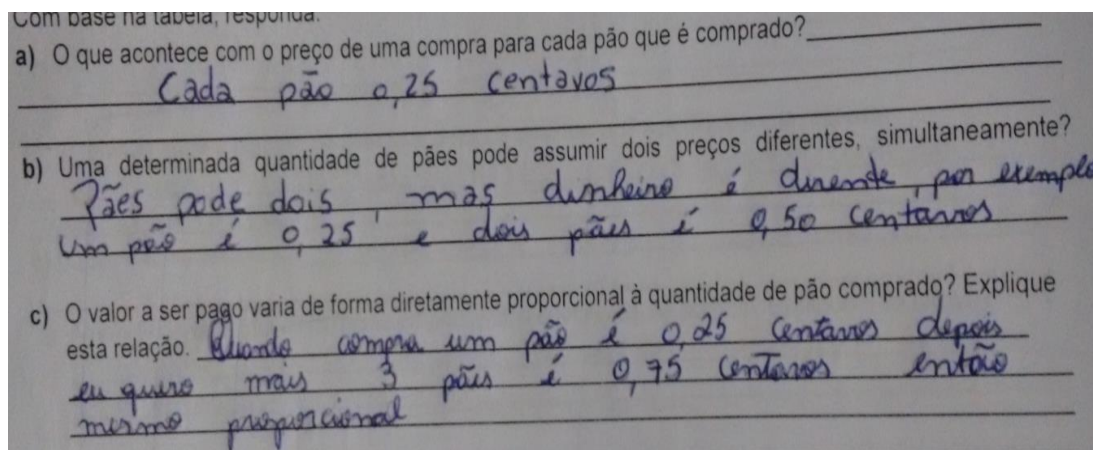 Com base na tabela, responda:
a) O que acontece com o preço de uma compra para cada pão que é comprado?
Cada pão 0,25 centavos
b) Uma determinada quantidade de pães pode assumir dois preços diferentes, simultaneamente?
Pães pode dois, mas dinheiro é dirente, por exemplo
um pão é 0,25 e dois pães é 0,50 centavos
c) O valor a ser pago varia de forma diretamente proporcional à quantidade de pão comprado? Explique
esta relação. Quando compra um pão é 0,25 centavos depois
eu quero mais 3 pães é 0,75 centavos então
mesmo proporcional